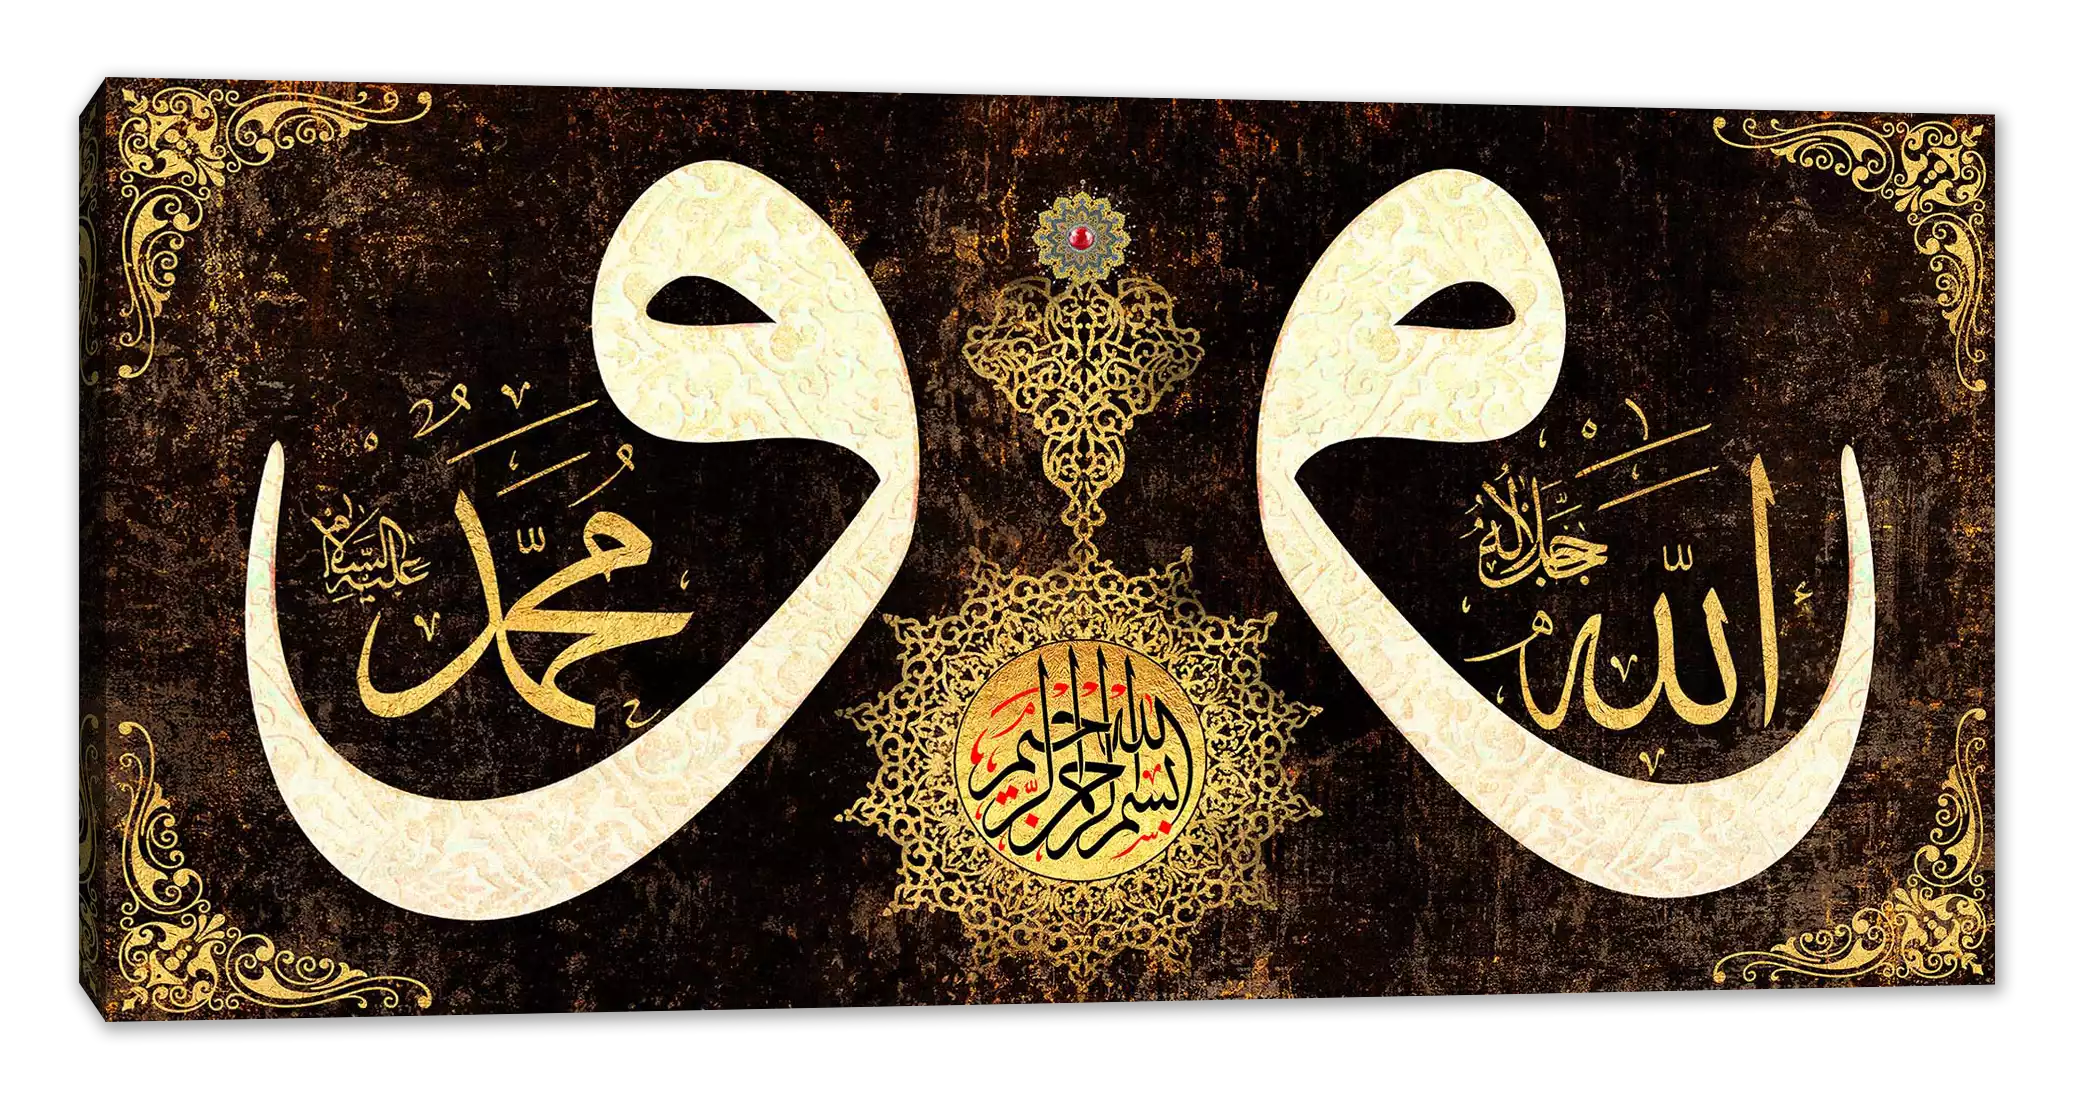 و
الله جل جلاله
بسم الله الرحمن الرحيم
و
محمد عليه السلام